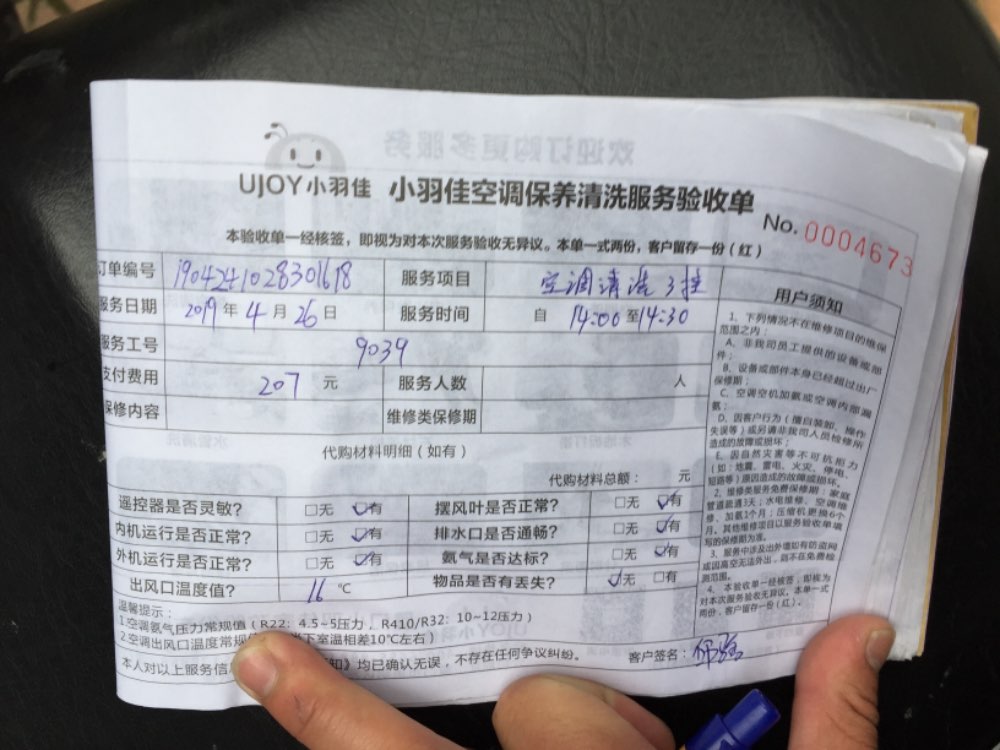 UJOY小羽佳 小羽佳空调保养清洗服务验收单
No. 0004673
本验收单一经核签，即视为对本次服务验收无异议。本单一式两份，客户留存一份（红）
订单编号 1904241028301618 服务项目 空调清洗3挂
服务日期 2019年4月26日 服务时间 自 14:00至14:30
服务工号 9039
支付费用 207 元 服务人数 人
保修内容 维修类保修期
代购材料明细（如有）
代购材料总额： 元
遥控器是否灵敏? □无 ☑有 摆风叶是否正常? □无 ☑有
内机运行是否正常? □无 ☑有 排水口是否通畅? □无 ☑有
外机运行是否正常? □无 ☑有 氨气是否达标? □无 ☑有
出风口温度值? 16 ℃ 物品是否有丢失? ☑无 □有
温馨提示：
1.空调氨气压力常规值（R22：4.5~5压力，R410/R32：10~12压力）
2.空调出风口温度常规 下室温相差10℃左右）
本人对以上服务信 知》均已确认无误，不存在任何争议纠纷。
客户签名：
用户须知
1、下列情况不在维修项目的维保
范围之内：
A、非我司员工提供的设备或部
件；
B、设备或部件本身已经超过出厂
保修期；
C、空调空机加氨或空调内部漏
氨；
D、因客户行为（擅自装卸、操作
失误等）或另请非我司人员检修所
造成的故障或损坏；
E、因自然灾害等不可抗拒力
（如：地震、雷电、火灾、停电、
短路等）原因造成的故障或损坏。
2、维修类服务免费保修期：家庭
管道疏通3天；水电维修、空调维
修、加氨1个月；压缩机更换6个
月，其他维修项目以服务验收单填
写的保修期为准。
3、服务中涉及出外墙如有防盗网
或因高空无法外出，则不在免费检
测范围。
4、本验收单一经核签，即视为
对本次服务验收无异议，本单一式
两份，客户留存一份（红）。
欢迎订购更多服务